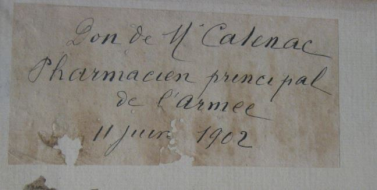 Don de Mr Catenac
Pharmacien principal
de l'armée
11 Juin 1902